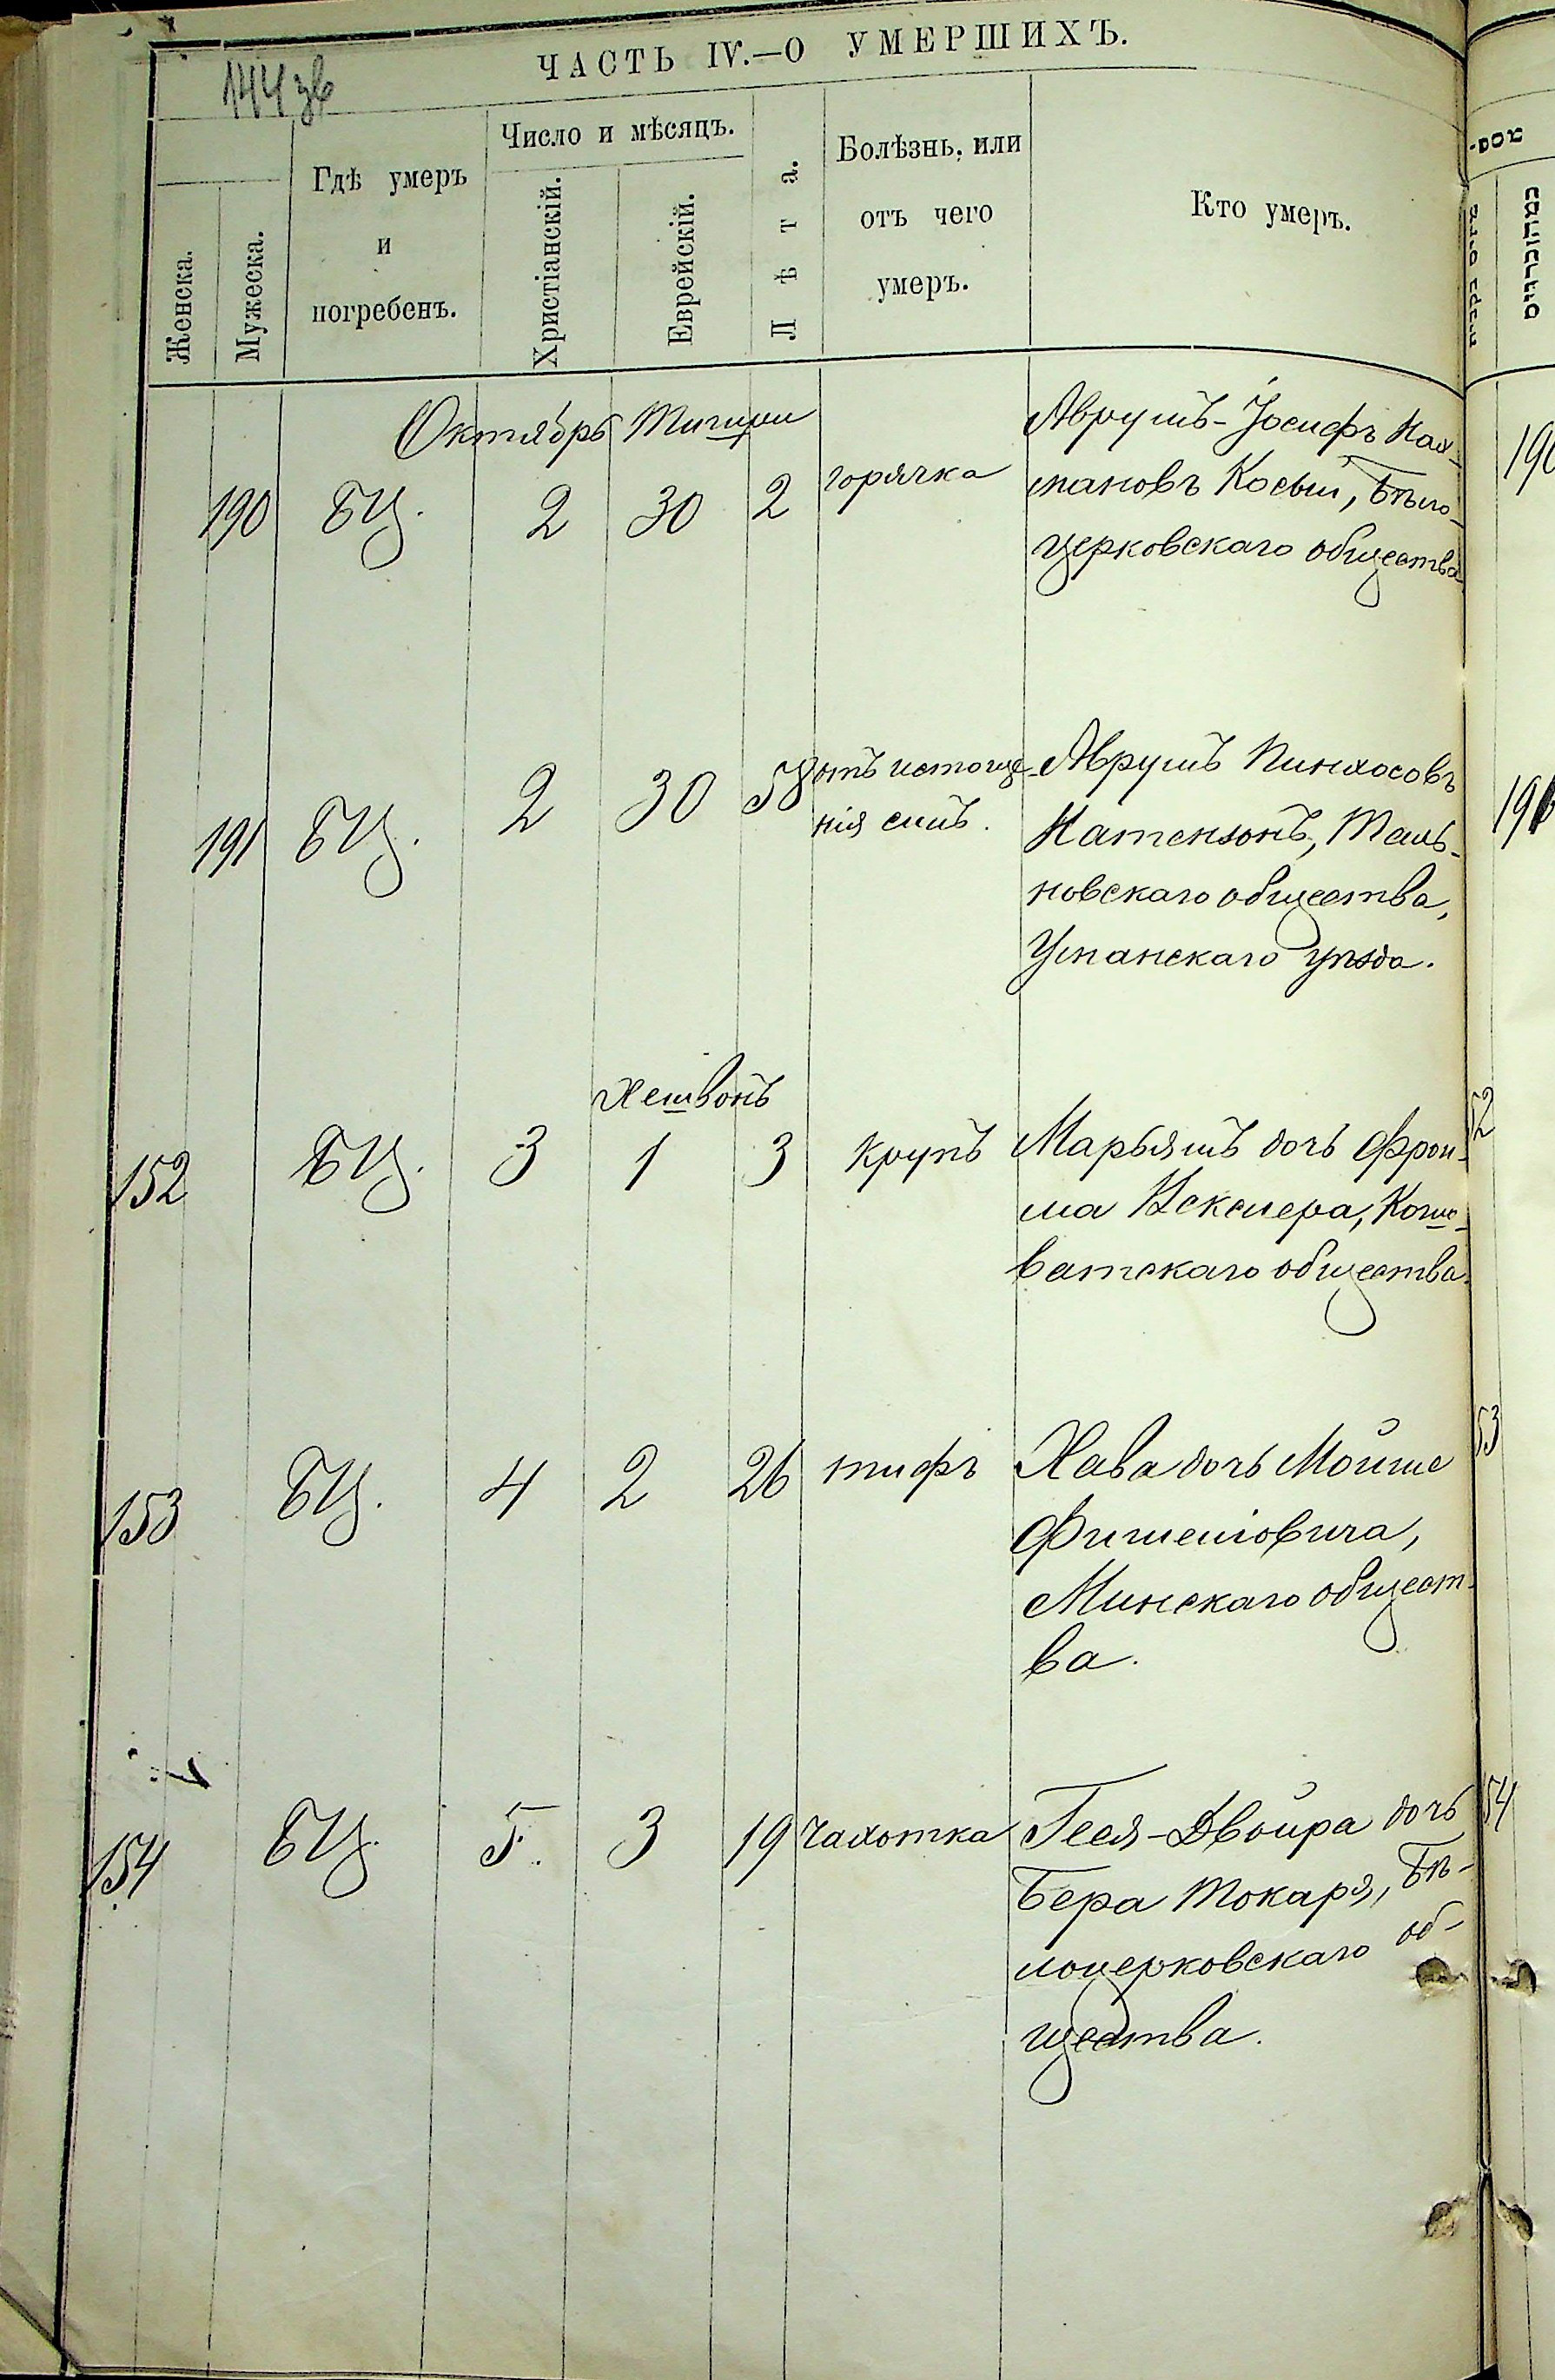 ЧАСТЬ IV.—О УМЕРШИХЪ.
144 зв
Женска.
Мужеска.
Гдѣ умеръ
и
погребенъ.
Число и мѣсяцъ.
Христіанскій.
Еврейскій.
Лѣта.
Болѣзнь, или
отъ чего
умеръ.
Кто умеръ.
Октябрь Тишри
190 БЦ. 2 30 2 горячка Аврумъ-Іосифъ Нах-
мановъ Косый, Бѣло-
церковскаго общества
191 БЦ. 2 30 58 отъ истоще- Аврумъ Пинхосовъ
нія силъ. Натензонъ, Таль-
новскаго общества,
Уманскаго уѣзда.
Хешвонъ
152 БЦ. 3 1 3 крупъ Марьямъ дочь Фрои-
ма Векслера, Коше-
ватскаго общества.
153 БЦ. 4 2 26 тифъ Хава дочь Мойше
Фишелювича,
Минскаго общест-
ва.
154 БЦ. 5. 3 19 чахотка Геся-Двойра дочь
Бера Токаря, Бѣ-
лоцерковскаго об-
щества.
190
191
52
53
54